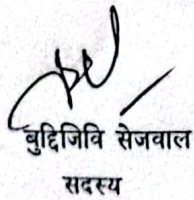 बुद्दिजिवि सेजवाल
सदस्य